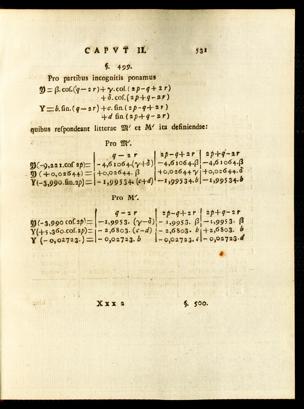 CAPVT II. 531
§. 499.
Pro partibus incognitis ponamus
𝔜 = β. cof. (q − 2r) + γ. cof. (2p − q + 2r)
+ δ. cof. (2p + q − 2r)
Y = b. fin. (q − 2r) + c. fin. (2p − q + 2r)
+ d fin (2p + q − 2r)
quibus refpondeant litterae 𝔐′ et M′ ita definiendae:
Pro 𝔐′.
q − 2r | 2p−q+2r | 2p+q−2r
𝔜(−9,221.cof 2p)= | −4,61064.(γ+δ) | −4,61064.β | −4,61064.β
𝔜(+0,02644)= | +0,02644. β | +0,02644 γ | +0,02644. δ
Y(−3,990.fin.2p)= | −1,99534. (c+d) | −1,99534. b | −1,99534. b
Pro M′.
q − 2r | 2p−q+2r | 2p+q−2r
𝔜(−3,990 cof.2p)= | −1,9953. (γ−δ) | −1,9953. β | −1,9953. β
Y(+5,360.cof.2p)= | −2,6803. (c−d) | −2,6803. b | +2,6803. b
Y (−0,02723.)= | −0,02723. b | −0,02723. c | −0,02723. d
Xxx 2 §. 500.